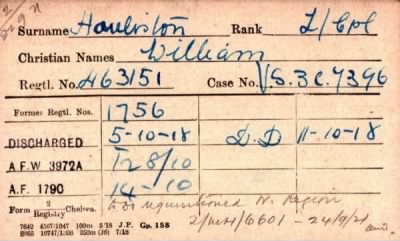 2
229 N
Surname Houliston Rank L/Cpl
Christian Names William
Regtl. No. 463151 Case No. S.3C.7396
Former Regtl. Nos. 1756
DISCHARGED 5-10-18 D.D 11-10-18
A.F.W 3972A 12 8/10
A.F. 179C 14-10
Form 2 Registry Chelsea. requisitioned W. Region
2/MH/6601 - 24/9/21
7642 4567/1047 100m 5/18 J.P. Gp. 158
8865 10747/1206 250m (26) 7/18